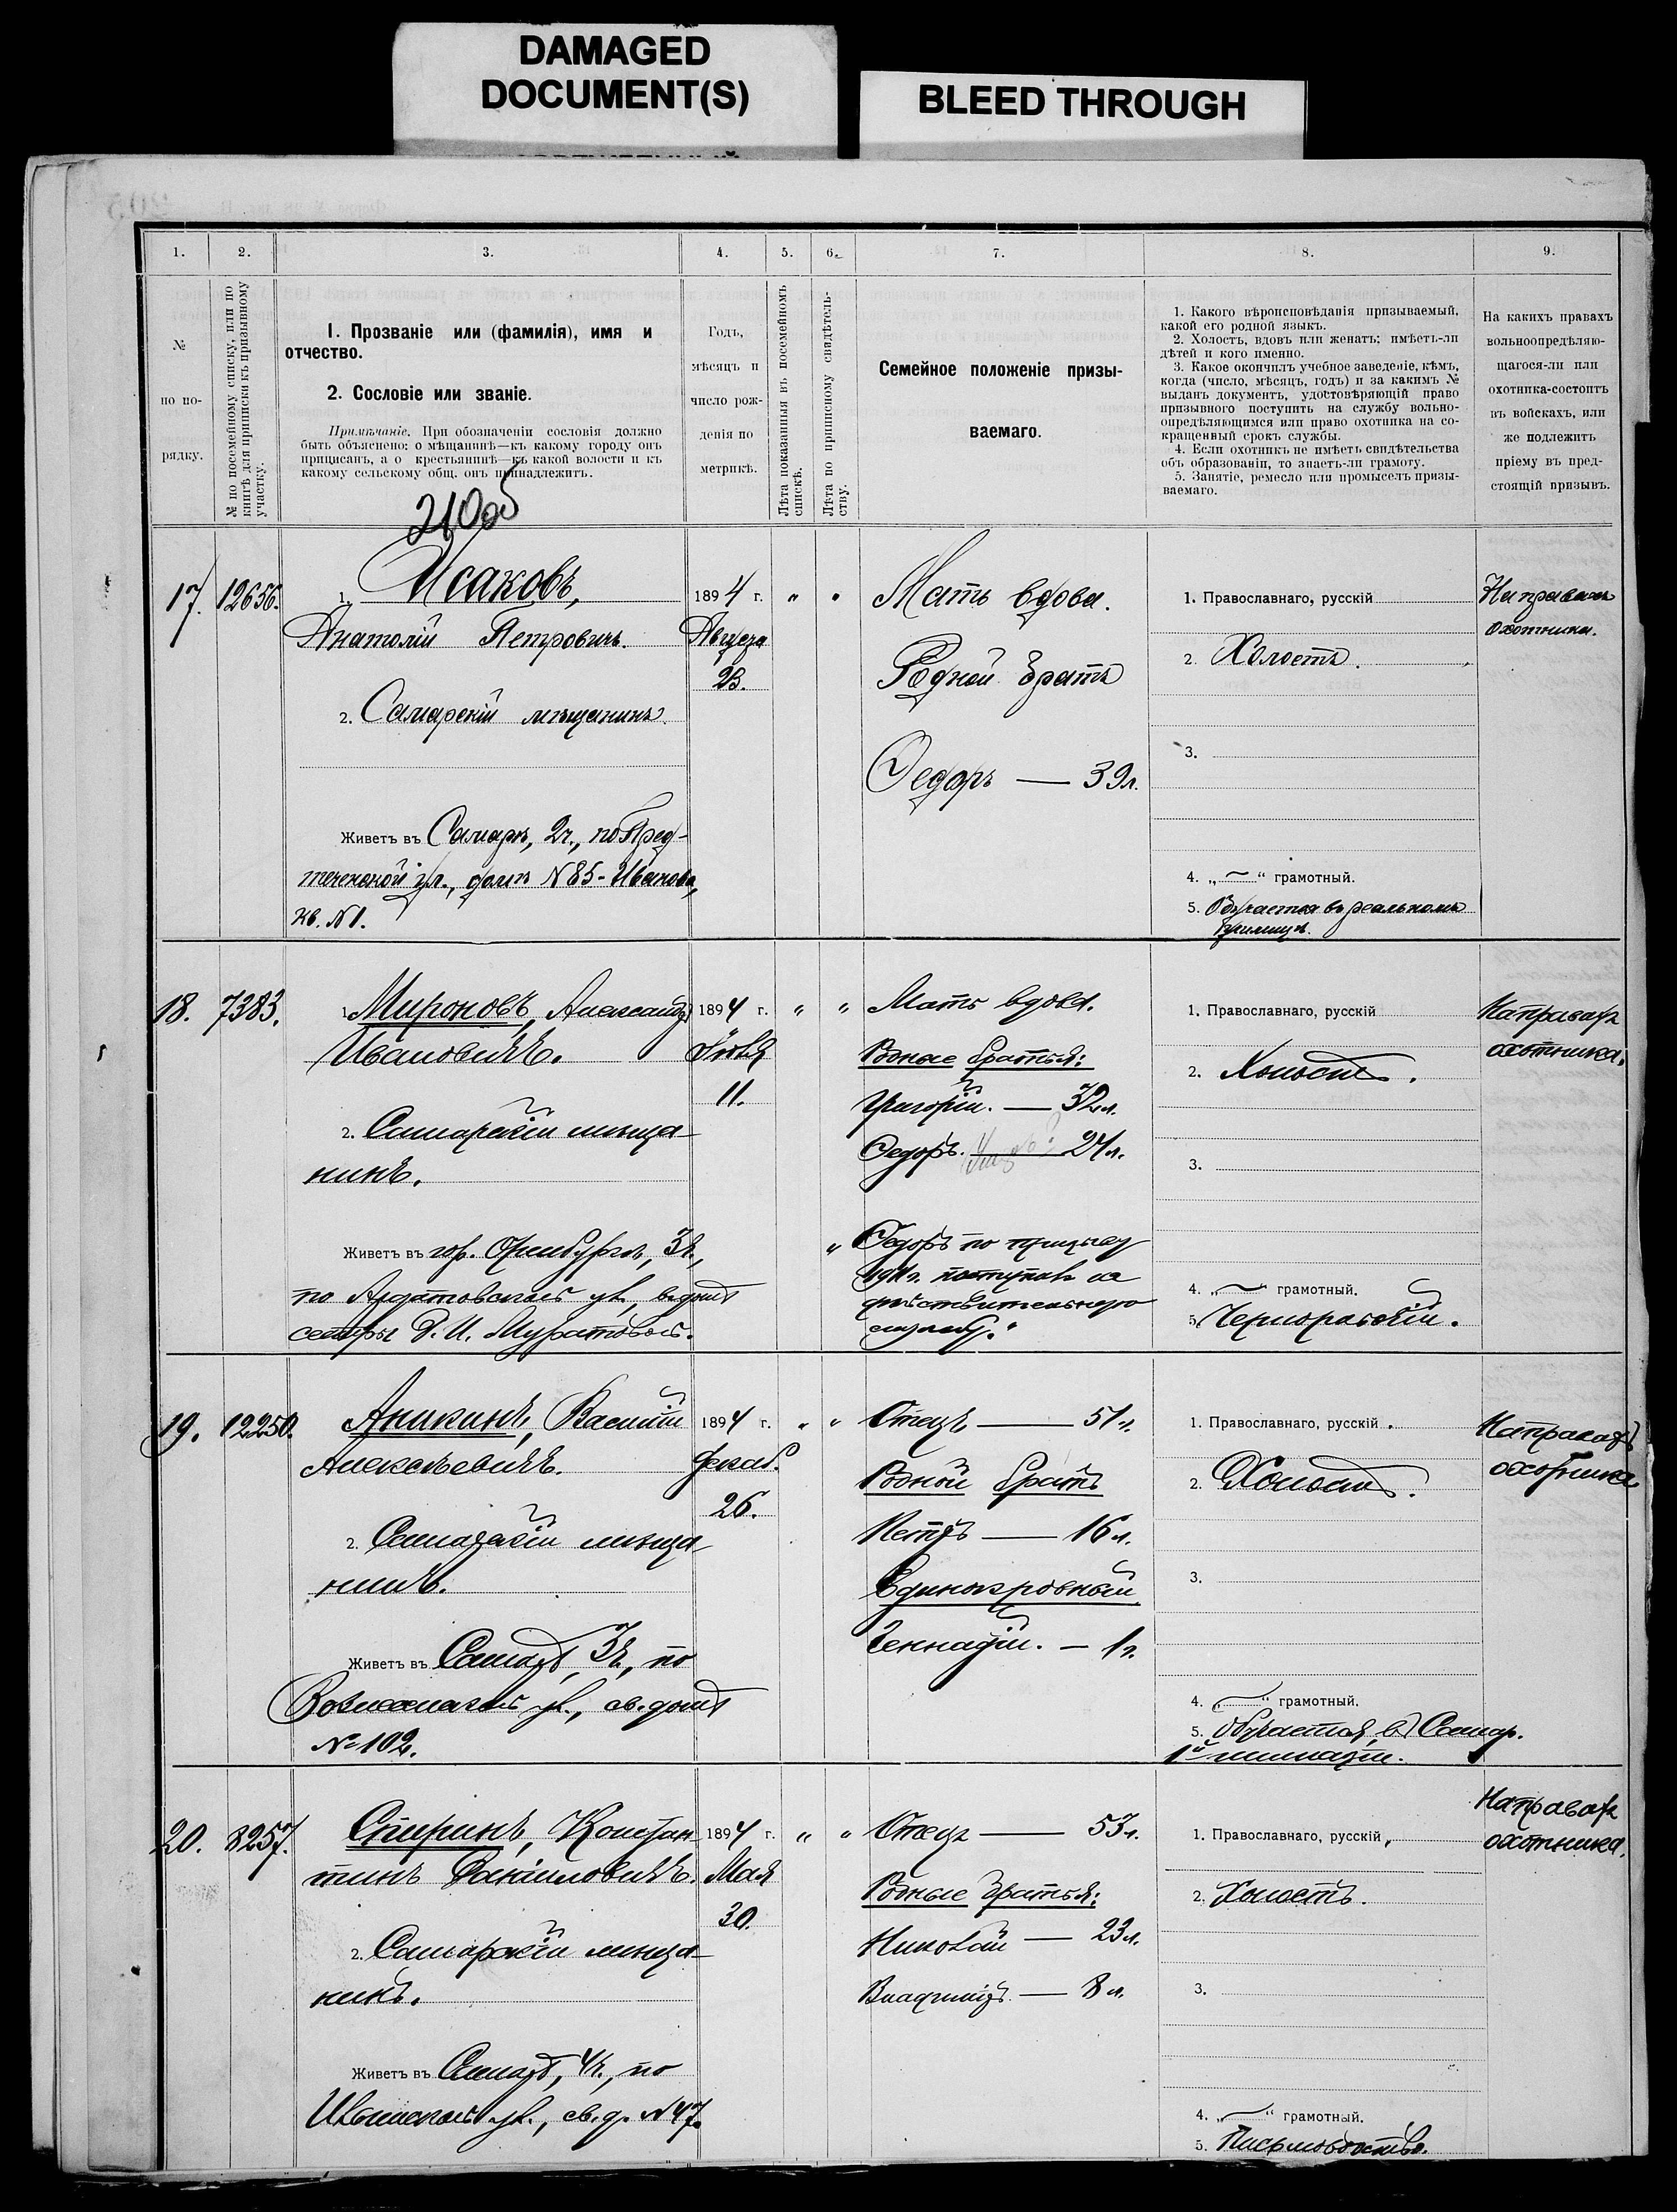 DAMAGED
DOCUMENT(S)
BLEED THROUGH
1.
2.
3.
4.
5.
6.
7.
8.
9.
№
по по-
рядку.
№ по посемейному списку, или по
книгѣ для приписки къ призывному
участку.
I. Прозваніе или (фамилія), имя и
отчество.
2. Сословіе или званіе.
Примѣчаніе. При обозначеніи сословія должно
быть объяснено: о мѣщанинѣ—къ какому городу онъ
приписанъ, а о крестьянинѣ—къ какой волости и къ
какому сельскому общ. онъ принадлежитъ.
Годъ,
мѣсяцъ и
число рож-
денія по
метрикѣ.
Лѣта показанныя въ посемейномъ
спискѣ.
Лѣта по приписному свидѣтель-
ству.
Семейное положеніе призы-
ваемаго.
1. Какого вѣроисповѣданія призываемый,
какой его родной языкъ.
2. Холостъ, вдовъ или женатъ; имѣетъ-ли
дѣтей и кого именно.
3. Какое окончилъ учебное заведеніе, кѣмъ,
когда (число, мѣсяцъ, годъ) и за какимъ №
выданъ документъ, удостовѣряющій право
призывного поступить на службу вольно-
опредѣляющимся или право охотника на со-
кращенный срокъ службы.
4. Если охотникъ не имѣетъ свидѣтельства
объ образованіи, то знаетъ-ли грамоту.
5. Занятіе, ремесло или промыселъ призы-
ваемаго.
На какихъ правахъ
вольноопредѣляю-
щагося-ли или
охотника-состоитъ
въ войскахъ, или
же подлежитъ
пріему въ пред-
стоящій призывъ.
17.
12656.
1. Исаковъ,
Анатолій Петровичъ.
2. Самарскій мѣщанинъ.
Живетъ въ Самарѣ, 2ч., по Пред-
теченской ул., домъ N85 - Иванова,
кв. N1.
1894 г.
Августа
23.
" "
Мать вдова.
Родной братъ
Федоръ — 39л.
1. Православнаго, русскій
2. Холостъ.
3.
4. „ — “ грамотный.
5. Обучается въ реальномъ
училищѣ.
На правахъ
охотника.
18.
7383.
1. Мироновъ, Александръ
Ивановичъ.
2. Самарскій мѣща-
нинъ.
Живетъ въ гор. Оренбургѣ, 3ч.,
по Ардатовской ул., въ домѣ
сестры П. И. Муратовой.
1894 г.
Іюля
11.
" "
Мать вдова.
Родные братья:
Григорій. — 32л.
Федоръ. — 24л.
„ Федоръ по призыву
1911г. поступилъ на
дѣйствительную
службу."
1. Православнаго, русскій
2. Холостъ.
3.
4. „ — “ грамотный.
5. Чернорабочій.
На правахъ
охотника.
19.
12250.
Аникинъ, Василій
Алексѣевичъ.
2. Самарскій мѣща-
нинъ.
Живетъ въ Самарѣ, 3ч., по
Вознесенской ул., св. домѣ
№ 102.
1894 г.
Декаб.
26.
" "
Отецъ — 51г.
Родной братъ
Петръ — 16л.
Единокровный
Геннадій. — 1г.
1. Православнаго, русскій.
2. Холостъ.
3.
4. „ — “ грамотный.
5. Обучается въ Самар.
1й гимназіи.
На правахъ
охотника.
20.
8257.
Спиринъ, Констан-
тинъ Даниловичъ.
2. Самарскій мѣща-
нинъ.
Живетъ въ Самарѣ, 4ч., по
Ильинской ул., св. д. N47.
1894 г.
Мая
30.
" "
Отецъ — 53г.
Родные братья:
Николай — 23л.
Владиміръ — 8л.
1. Православнаго, русскій,
2. Холостъ.
3.
4. „ — “ грамотный.
5. Письмоводство.
На правахъ
охотника.